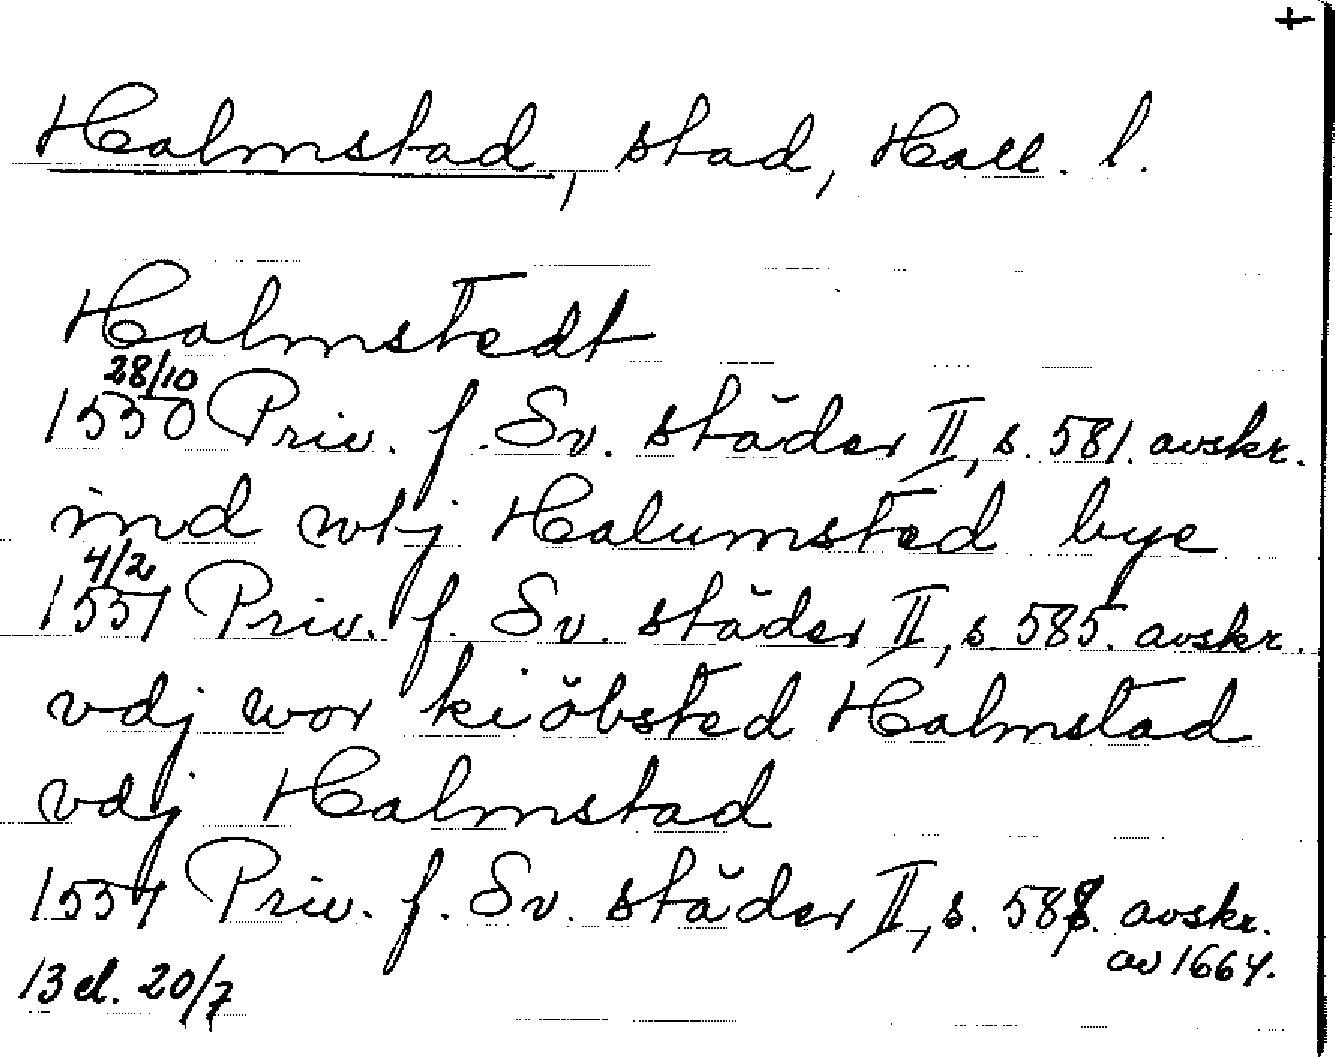 +
Halmstad, stad, Hall. l.
Halmstedt
28/10
1550 Priv. f. Sv. städer II, s. 581. avskr.
ind wtj Halumsted bye
4/2
1551 Priv. f. Sv. städer II, s. 585. avskr.
vdj wor kiöbsted Halmstad
vdj Halmstad
1557 Priv. f. Sv. städer II, s. 588. avskr.
av 1664.
13 el. 20/7